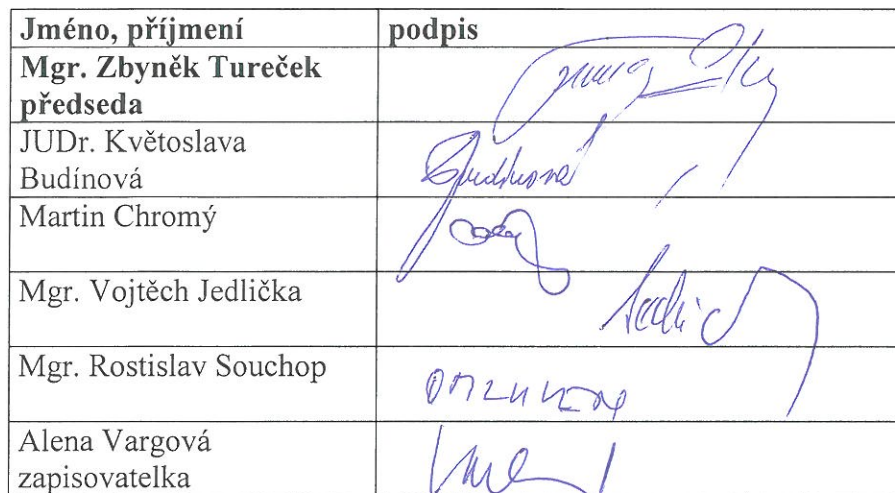 Jméno, příjmení podpis
Mgr. Zbyněk Tureček
předseda
JUDr. Květoslava
Budínová
Budínová
Martin Chromý
Mgr. Vojtěch Jedlička
Mgr. Rostislav Souchop
OMLUVEN
Alena Vargová
zapisovatelka